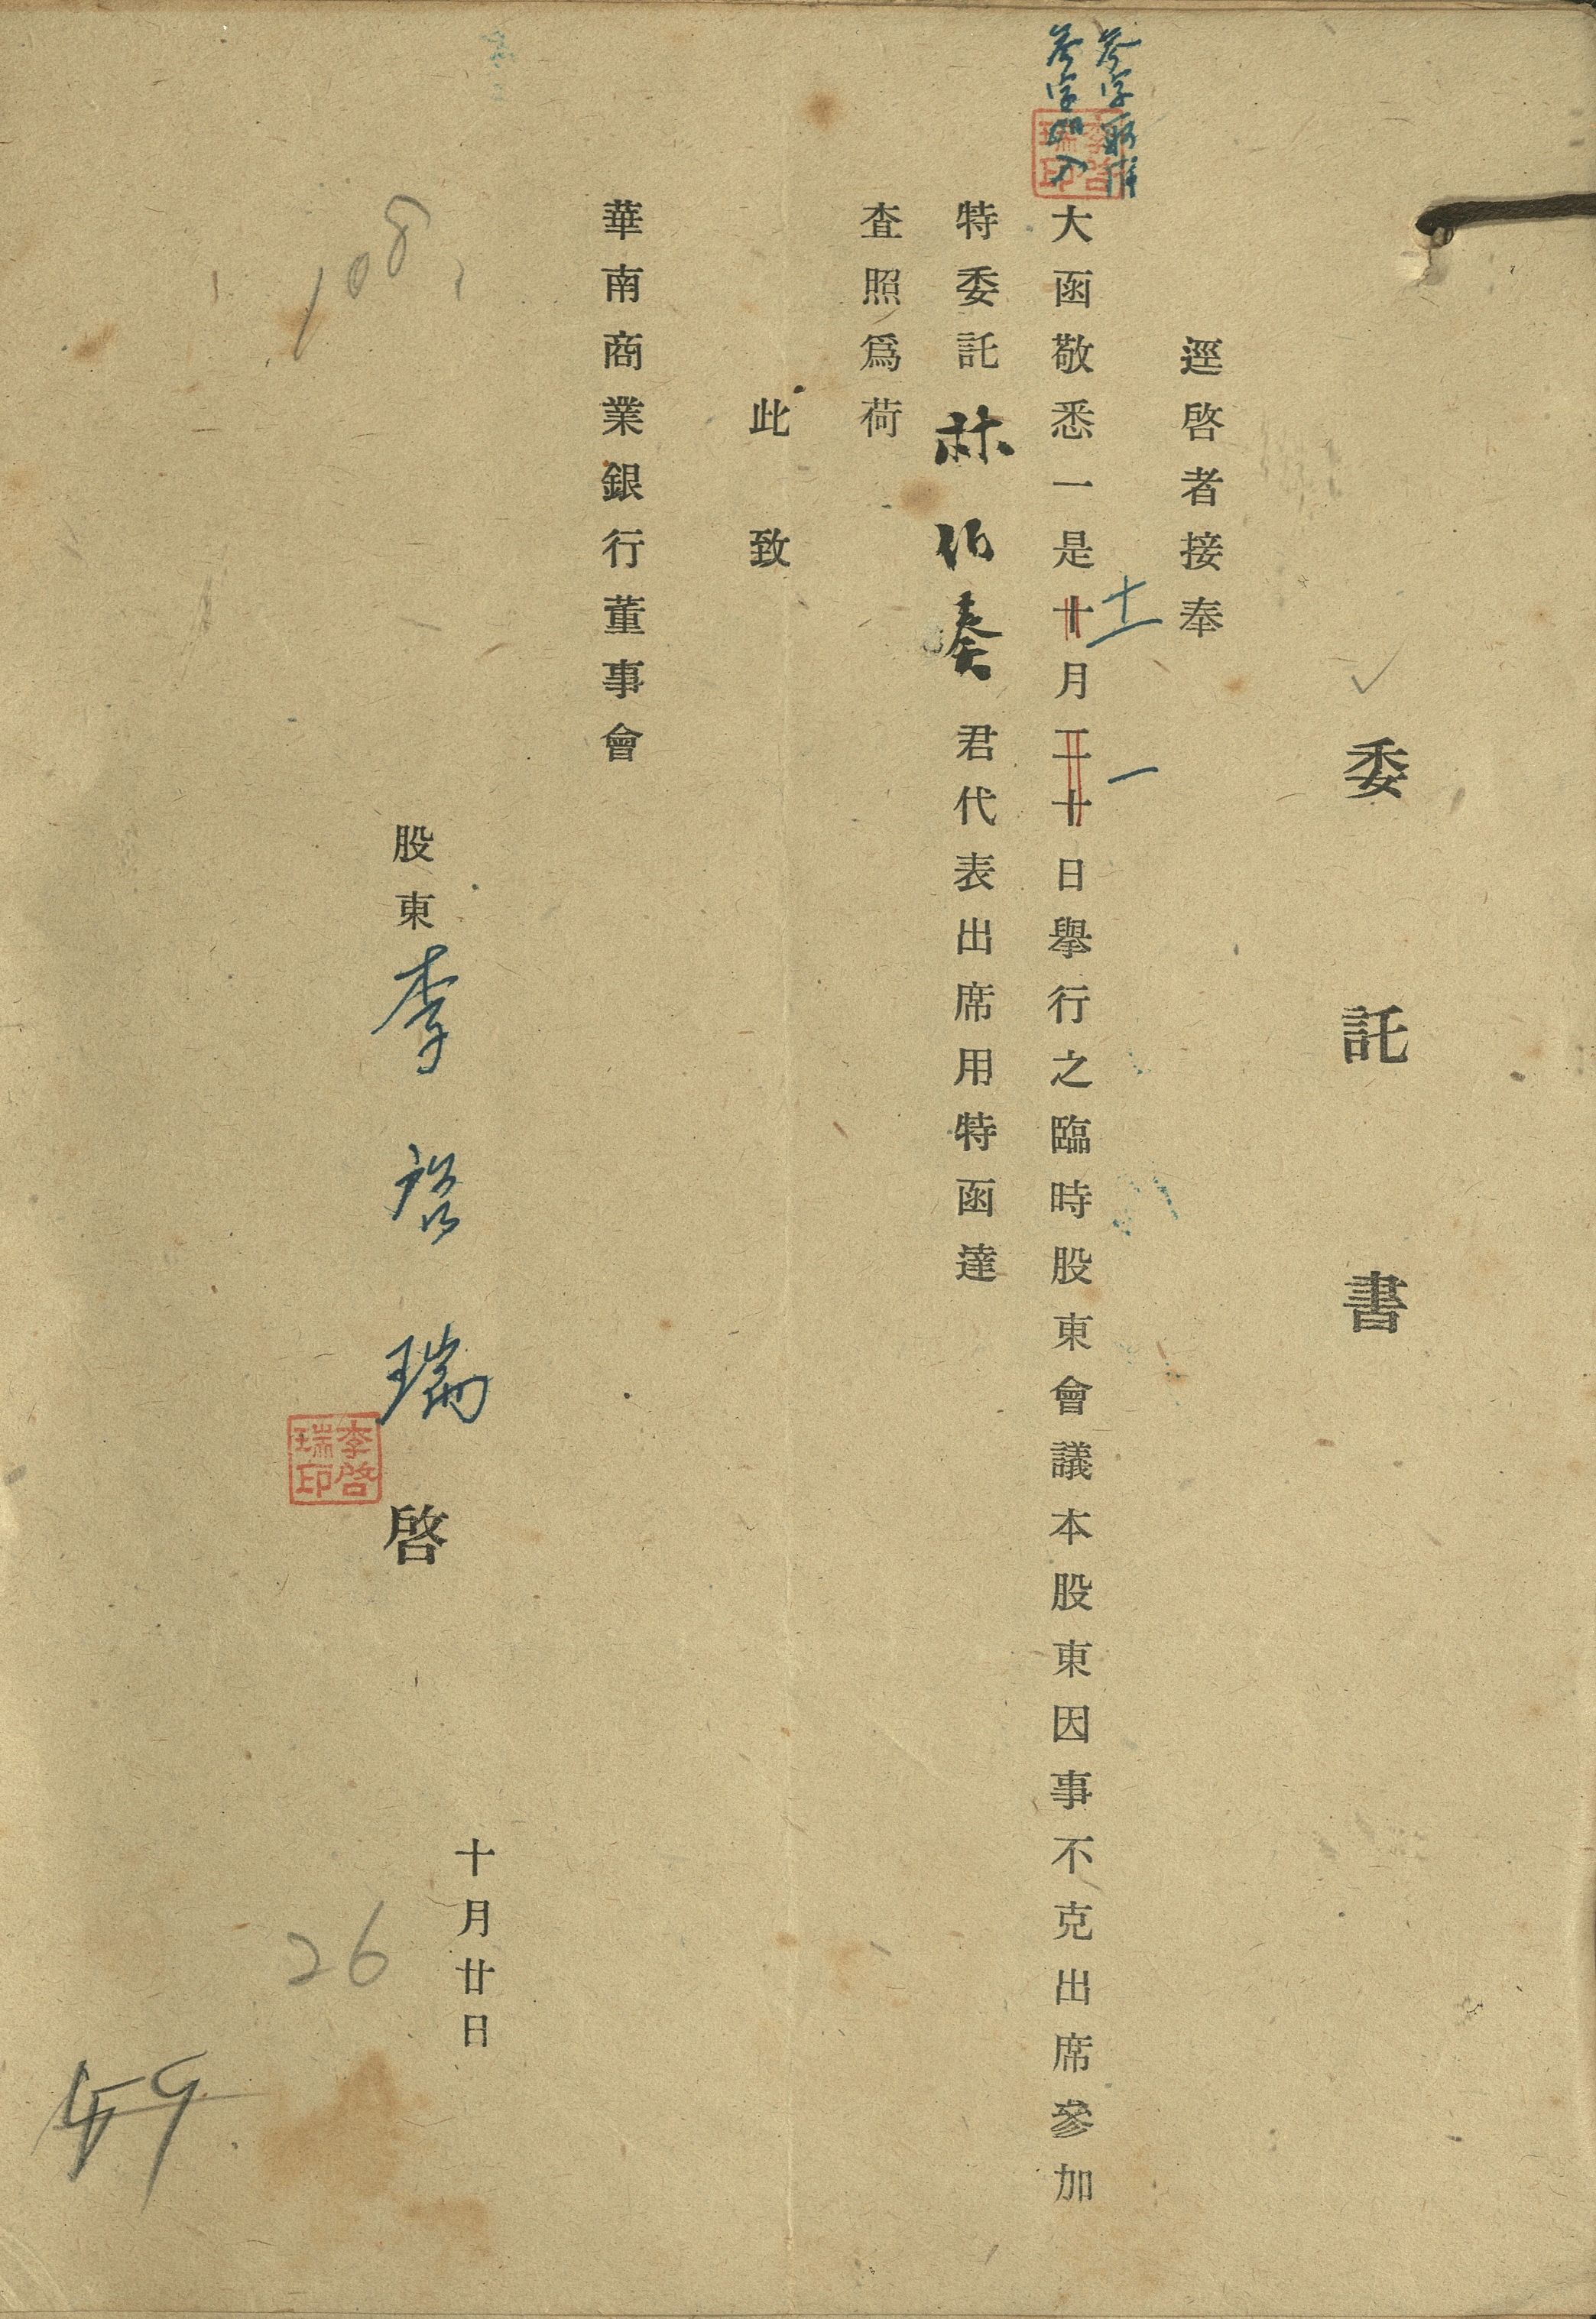 委託書
逕啓者接奉
大函敬悉一是十月二十日舉行之臨時股東會議本股東因事不克出席參加
十一
一
參字取消
參字加入
李啓瑞印
特委託林伯奏君代表出席用特函達
查照爲荷
此致
華南商業銀行董事會
股東李啓瑞啓
李啓瑞印
十月廿日
108
26